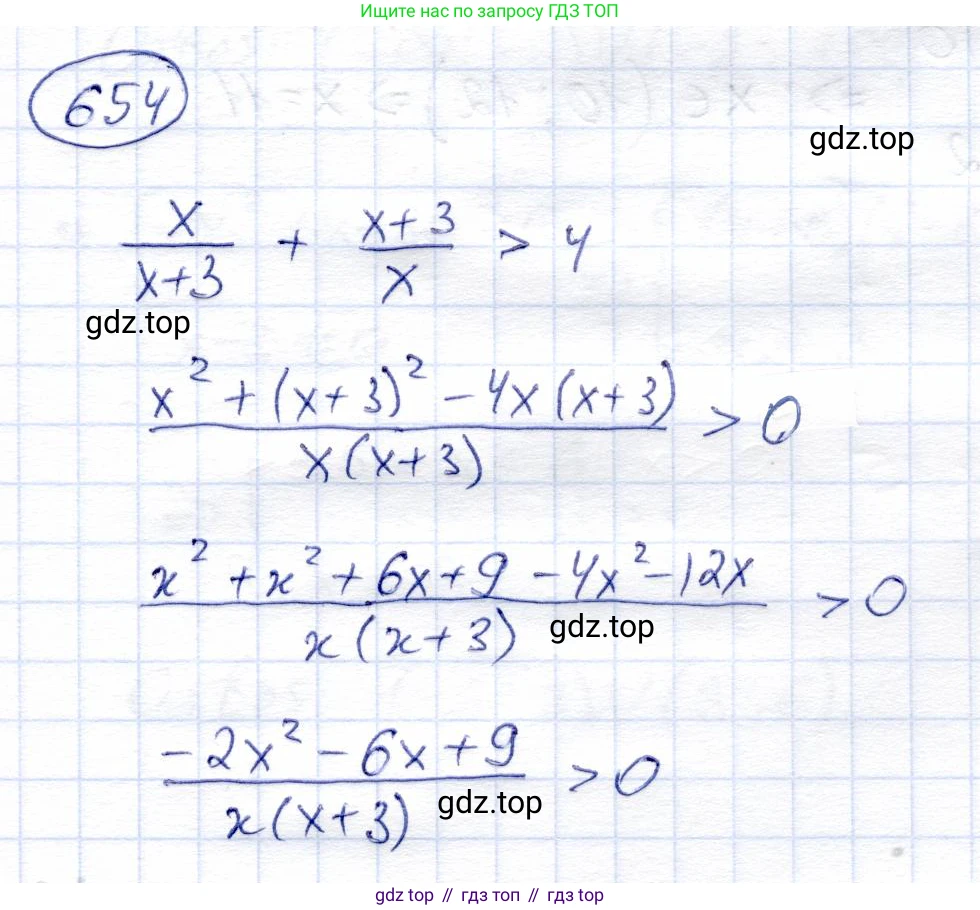 Ищите нас по запросу ГДЗ ТОП
654
gdz.top
x/(x+3) + (x+3)/x > 4
gdz.top
(x² + (x+3)² - 4x(x+3))/(x(x+3)) > 0
(x² + x² + 6x + 9 - 4x² - 12x)/(x(x+3)) > 0
gdz.top
(-2x² - 6x + 9)/(x(x+3)) > 0
gdz.top
gdz top // гдз топ // gdz top